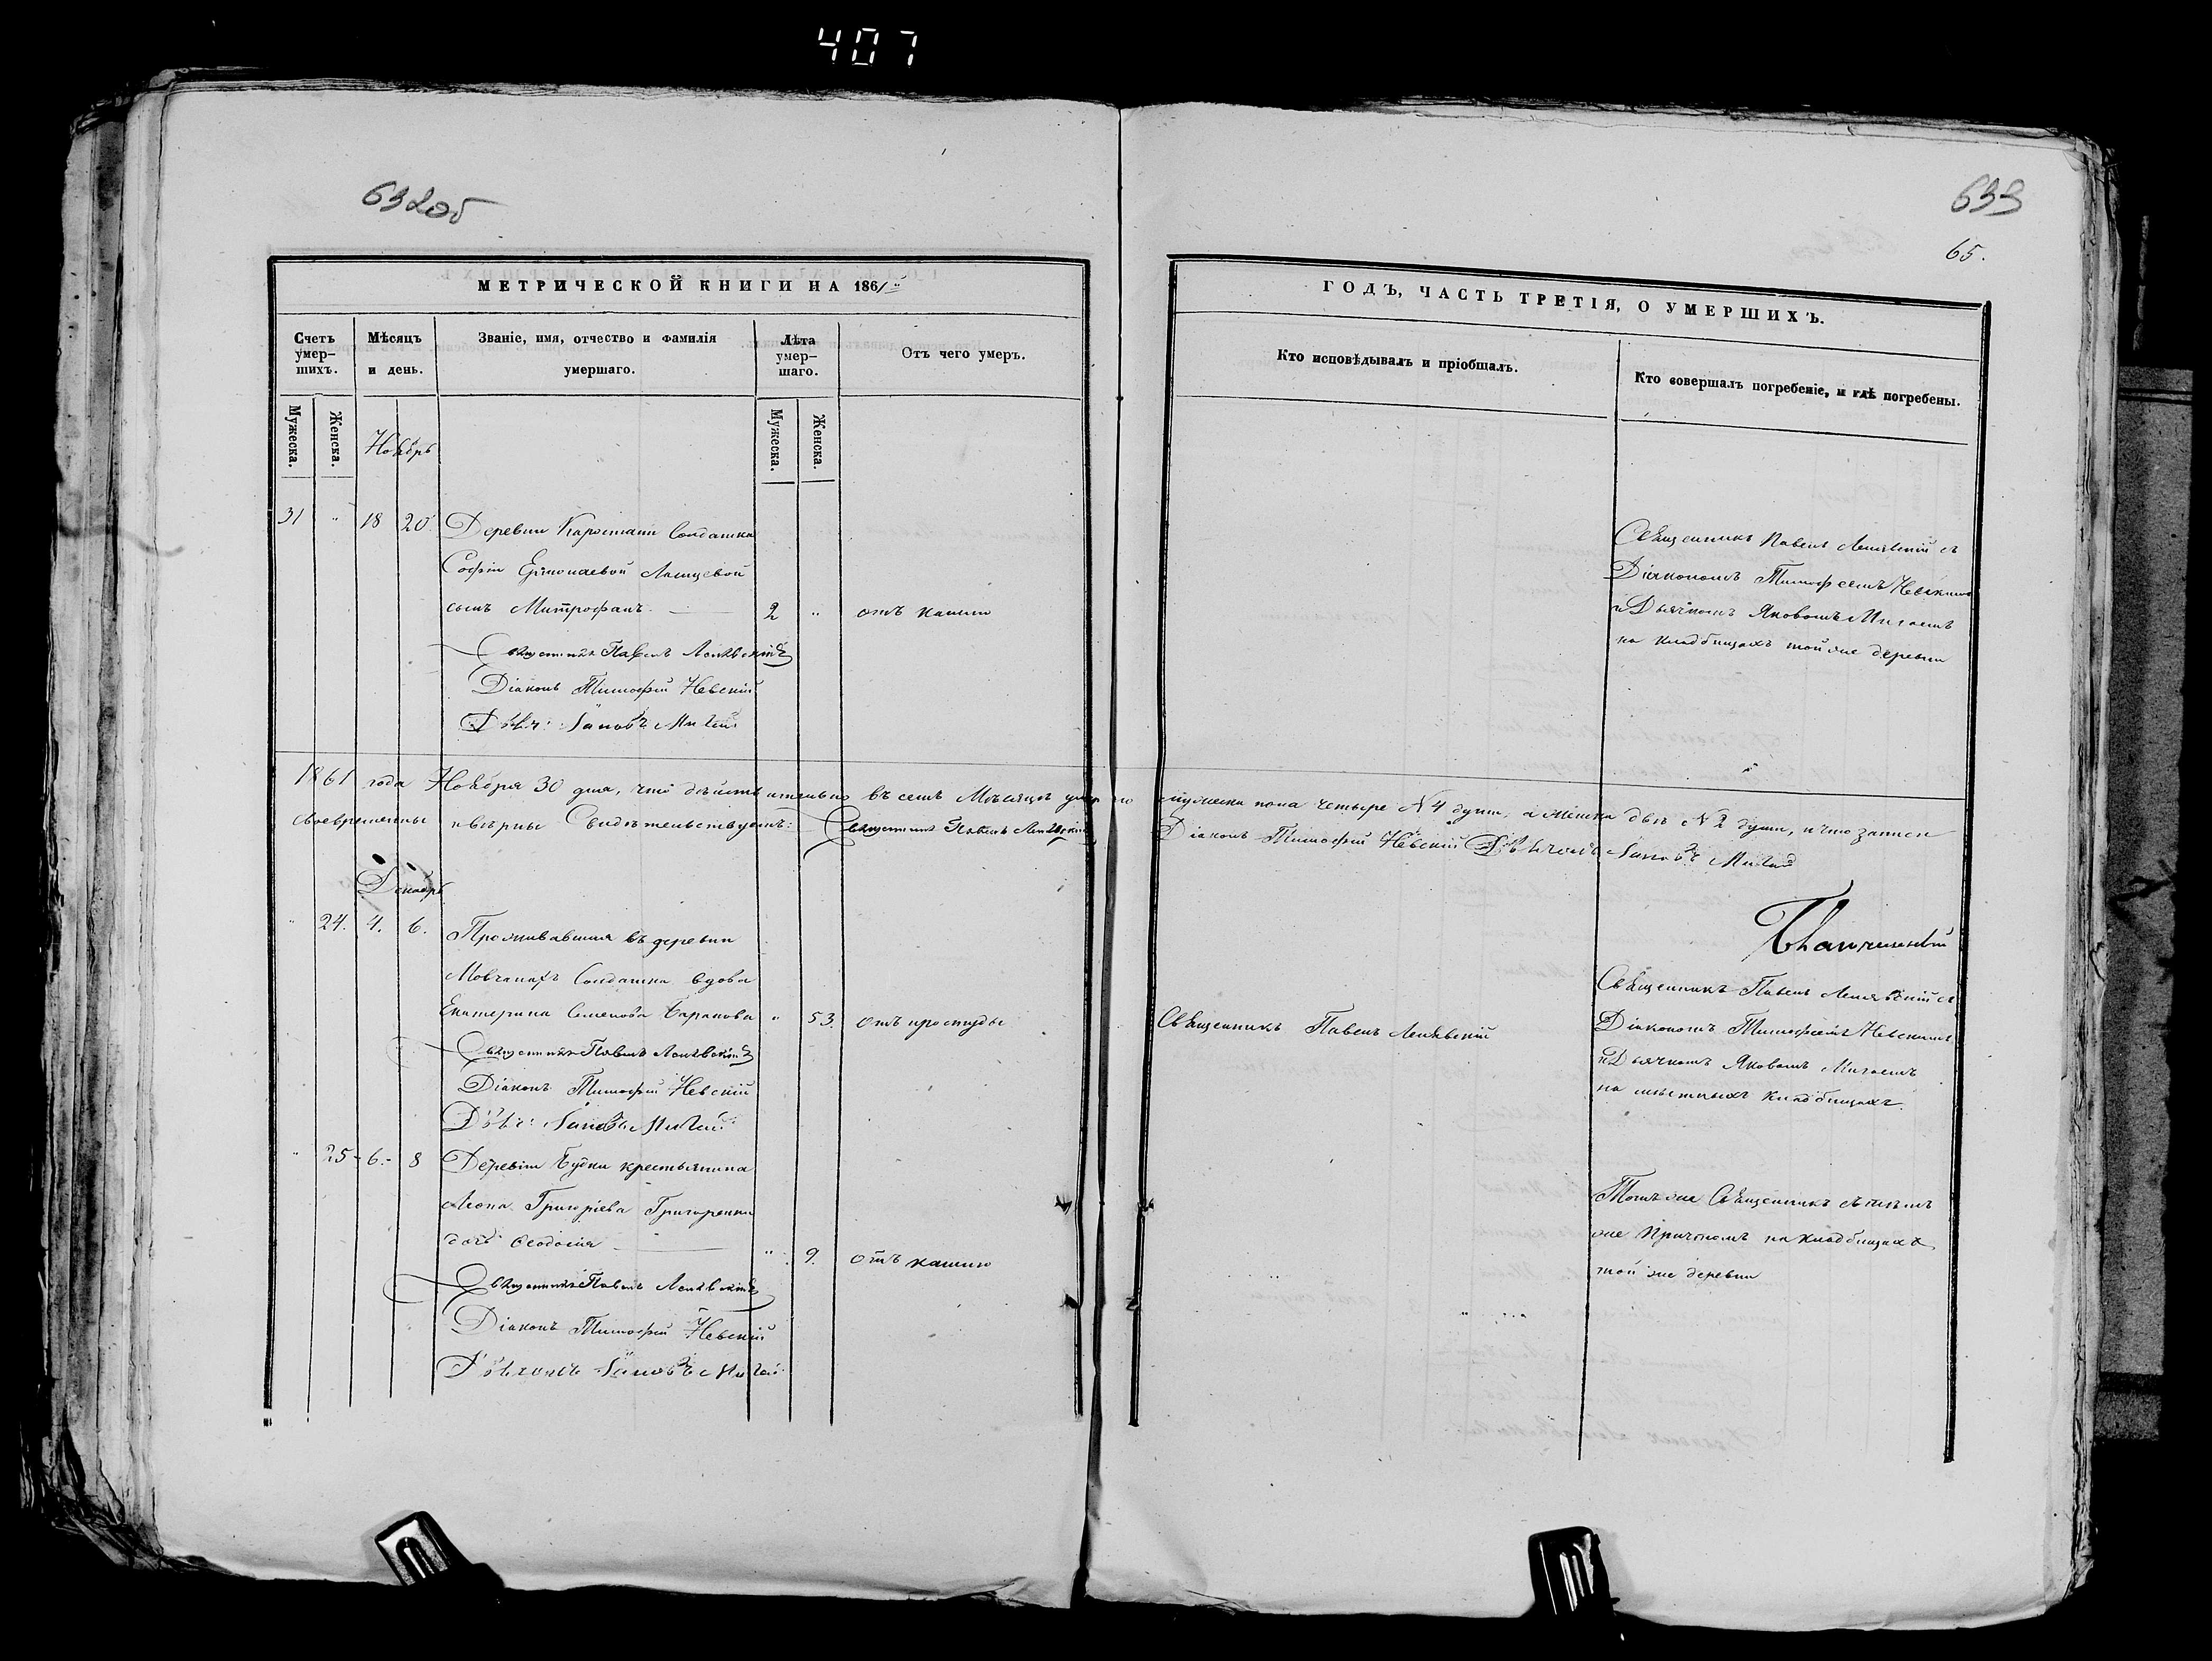 407
632об
633
65.
МЕТРИЧЕСКОЙ КНИГИ НА 1861
ГОДЪ, ЧАСТЬ ТРЕТІЯ, О УМЕРШИХЪ.
Счетъ умер-
шихъ.
Мѣсяцъ
и день.
Званіе, имя, отчество и фамилія
умершаго.
Лѣта
умер-
шаго.
Отъ чего умеръ.
Кто исповѣдывалъ и пріобщалъ.
Кто совершалъ погребеніе, и гдѣ погребены.
Мужеска.
Женска.
Мужеска.
Женска.
Ноябрь
31 " 18 20
Деревни Солдатки
Софіи
сынъ Митрофанъ
2 " отъ кашлю
Священникъ Павелъ
Діаконъ Тимофей Невскій
Священникъ Павелъ съ
Діакономъ Тимофеемъ Невскимъ
и Дьячкомъ Яковомъ
на кладбищахъ той же деревни
1861 года Ноября 30 дня, что дѣйствительно въ семъ Мѣсяцѣ умерло мужеска пола четыре № 4 души, а женска двѣ № 2 души, и что записи
своевременны и вѣрны Свидѣтельствуемъ: Священникъ Павелъ
Діаконъ Тимофей Невскій
Декабрь
" 24. 4. 6.
Проживавшая въ деревни
Мовчанахъ Солдатка вдова
Екатерина Семенова Баранова
" 53. отъ простуды
Священникъ Павелъ
Діаконъ Тимофей Невскій
Священникъ Павелъ
Священникъ Павелъ съ
Діакономъ Тимофеемъ Невскимъ
и Дьячкомъ Яковомъ
на мѣстныхъ кладбищахъ.
" 25 6. 8
Деревни Будки крестьянина
Григоріева Григоренка
дочь Феодосія
" 9. отъ кашлю
Священникъ Павелъ
Діаконъ Тимофей Невскій
Тотъ же Священникъ съ тѣмъ
же Причтомъ на кладбищахъ
той же деревни